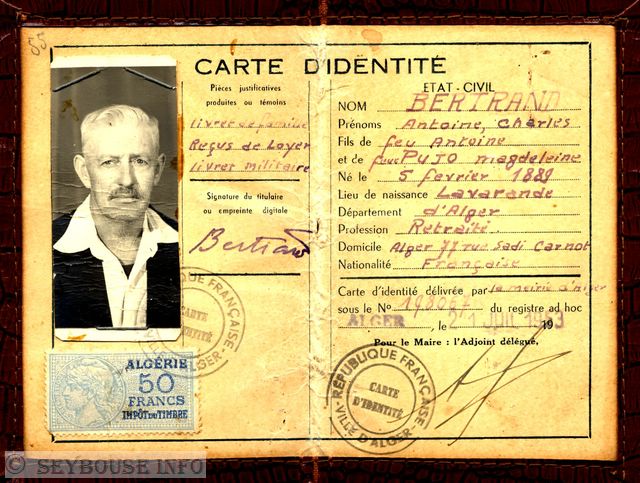 55
CARTE D'IDENTITÉ
Pièces justificatives
produites ou témoins
livret de famille
Reçus de Loyer
livret militaire
Signature du titulaire
ou empreinte digitale
Bertrand
RÉPUBLIQUE FRANÇAISE
CARTE
D'IDENTITÉ
ALGÉRIE
50
FRANCS
IMPÔT DU TIMBRE
ETAT-CIVIL
NOM BERTRAND
Prénoms Antoine, Charles
Fils de feu Antoine
et de feue PUJO magdeleine
Né le 5 février 1889
Lieu de naissance Lavarande
Département d'Alger
Profession Retraité
Domicile Alger 77 rue Sadi Carnot
Nationalité Française
Carte d'identité délivrée par la mairie d'Alger
sous le N° du registre ad hoc
ALGER, le 1953
Pour le Maire : l'Adjoint délégué,
RÉPUBLIQUE FRANÇAISE
CARTE
D'IDENTITÉ
VILLE D'ALGER
© SEYBOUSE INFO